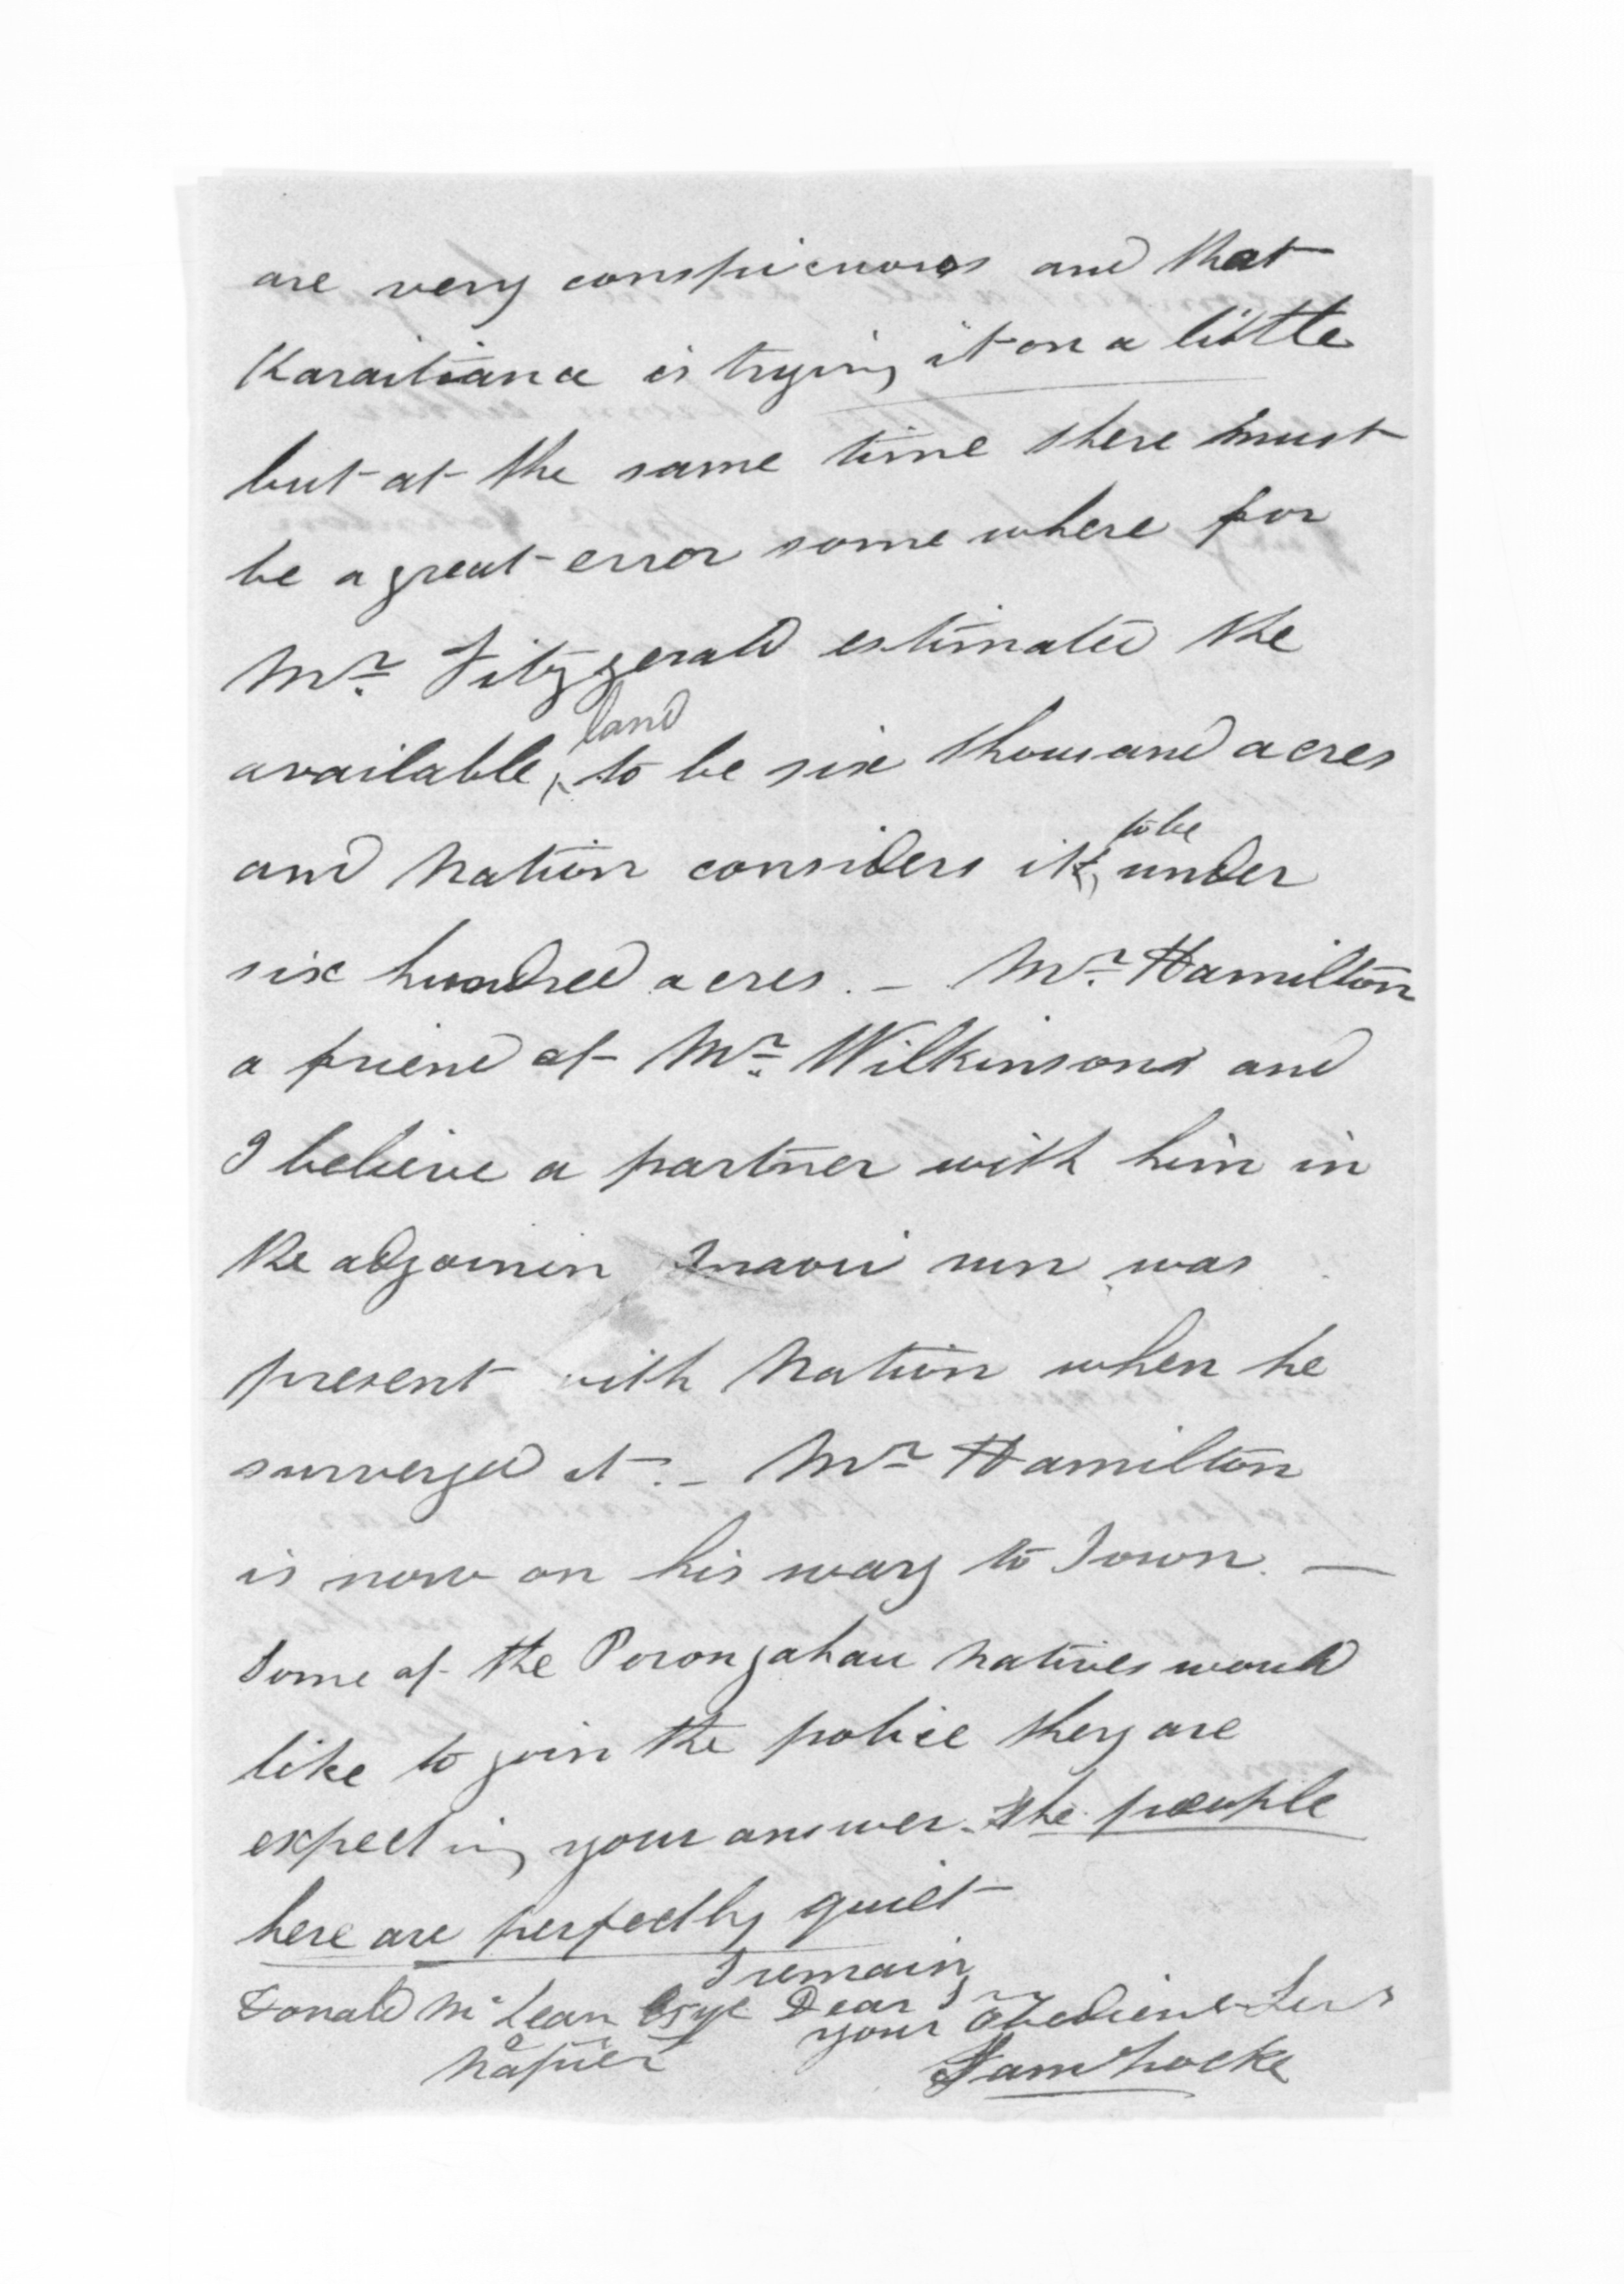 are very conspicuous and that
Karaitiana is trying it on a little
but at the same time there must
be a great error some where for
Mr. Fitzgerald estimated the
available land to be six thousand acres
and Nation considers it to be under
six hundred acres. – Mr. Hamilton
a friend of Mr. Wilkinsons and
I believe a partner with him in
the adjoinin maori run was
present with Nation when he
surveyed it. – Mr Hamilton
is now on his way to Town. –
Some of the Porongahau natives would
like to join the police they are
expecting your answer. The people
here are perfectly quiet
I remain
Donald McLean Esqr Dear Sir
your obedient Serv
Napier
Saml Locke